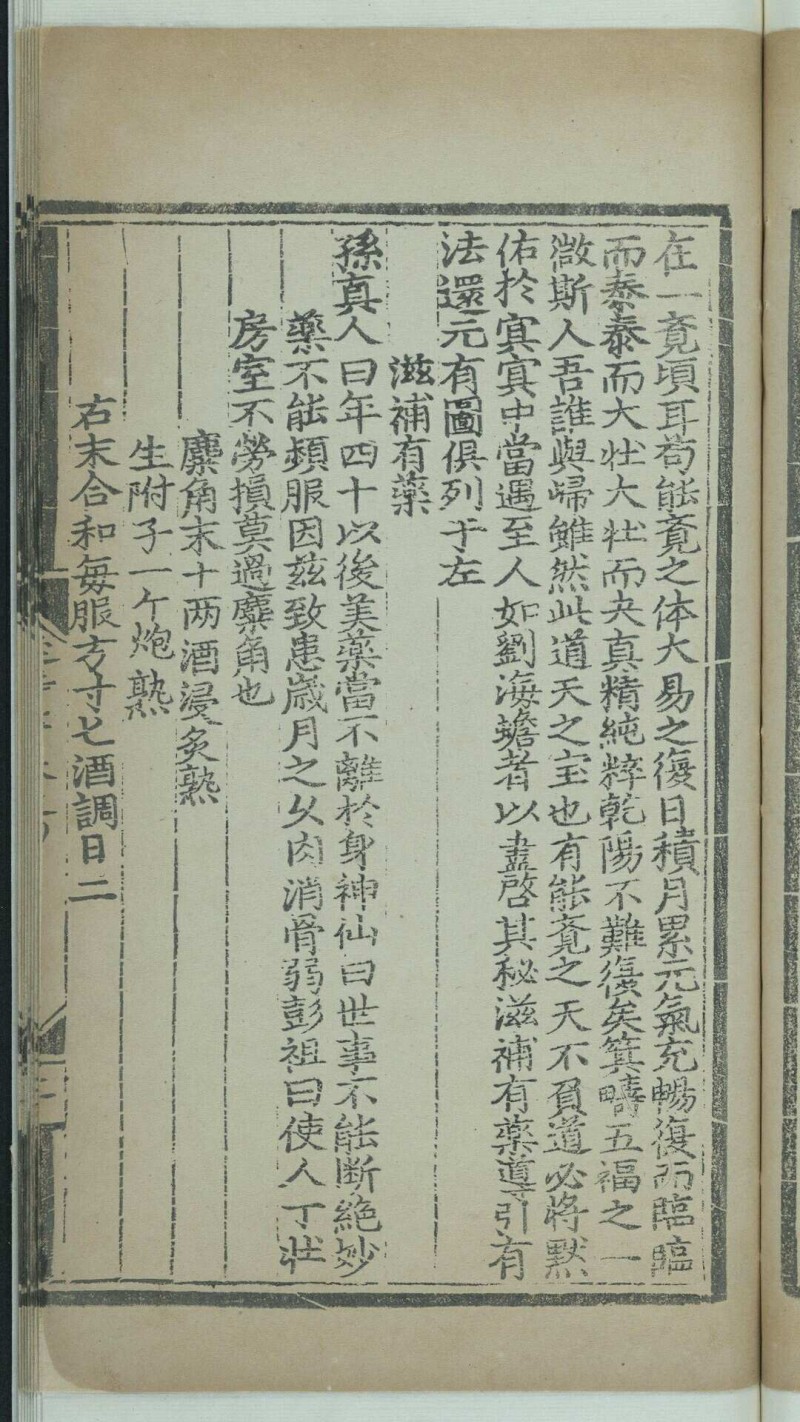 在一竟頃耳苟能竟之体大易之復日積月累元氣充暢復而臨臨
而泰泰而大壮大壮而夬真精純粹乾陽不難復矣箕疇五福之一
微斯人吾誰與歸雖然此道天之宝也有能竟之天不負道必将黙
佑於冥冥中當遇至人如劉海蟾者以盡啓其秘滋補有薬導引有
法還元有圖俱列于左
滋補有薬
孫真人曰年四十以後美薬當不離於身神仙曰世事不能断絶妙
薬不能頻服因兹致患歳月之久肉消骨弱彭祖曰使人丁壮
房室不勞損莫過麋角也
麋角末十两酒浸炙熟
生附子一个炮熟
右末合和每服方寸匕酒調日二